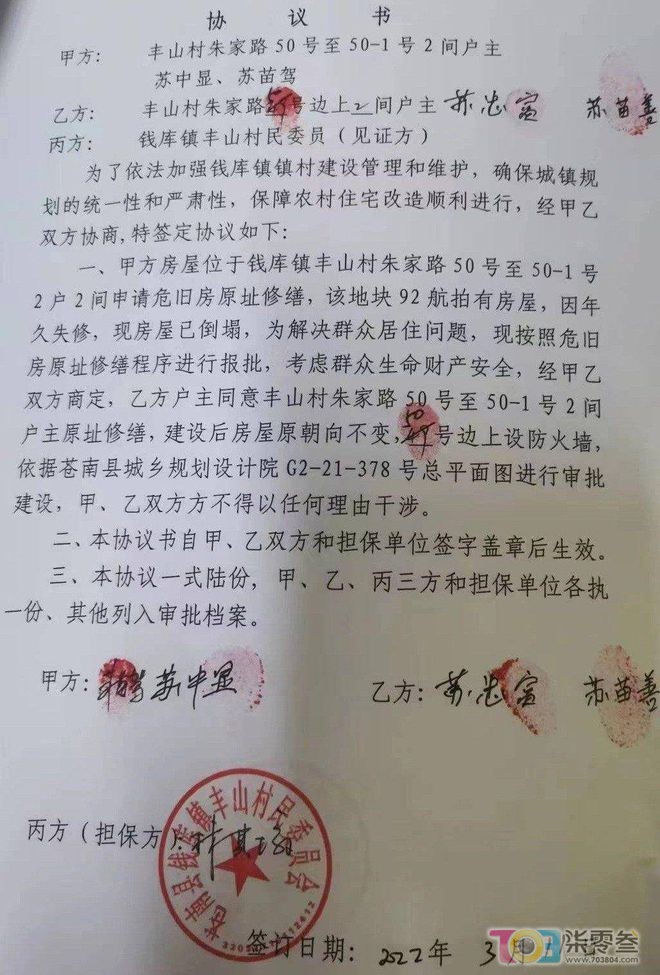 协 议 书
甲方： 丰山村朱家路50号至50-1号2间户主
苏中显、苏苗驾
乙方： 丰山村朱家路号边上2间户主 苏忠富 苏苗善
丙方： 钱库镇丰山村民委员（见证方）
为了依法加强钱库镇镇村建设管理和维护，确保城镇规
划的统一性和严肃性，保障农村住宅改造顺利进行，经甲乙
双方协商,特签定协议如下：
一、甲方房屋位于钱库镇丰山村朱家路50号至50-1号
2户2间申请危旧房原址修缮，该地块92航拍有房屋，因年
久失修，现房屋已倒塌，为解决群众居住问题，现按照危旧
房原址修缮程序进行报批，考虑群众生命财产安全，经甲乙
双方商定，乙方户主同意丰山村朱家路50号至50-1号2间
户主原址修缮，建设后房屋原朝向不变，号边上设防火墙，
依据苍南县城乡规划设计院G2-21-378号总平面图进行审批
建设，甲、乙双方方不得以任何理由干涉。
二、本协议书自甲、乙双方和担保单位签字盖章后生效。
三、本协议一式陆份，甲、乙、丙三方和担保单位各执
一份、其他列入审批档案。
甲方： 苏中显 乙方：苏忠富 苏苗善
丙方（担保方）
苍南县钱库镇丰山村民委员会
签订日期： 2022年 3月
703 柒零叁
www.703804.com